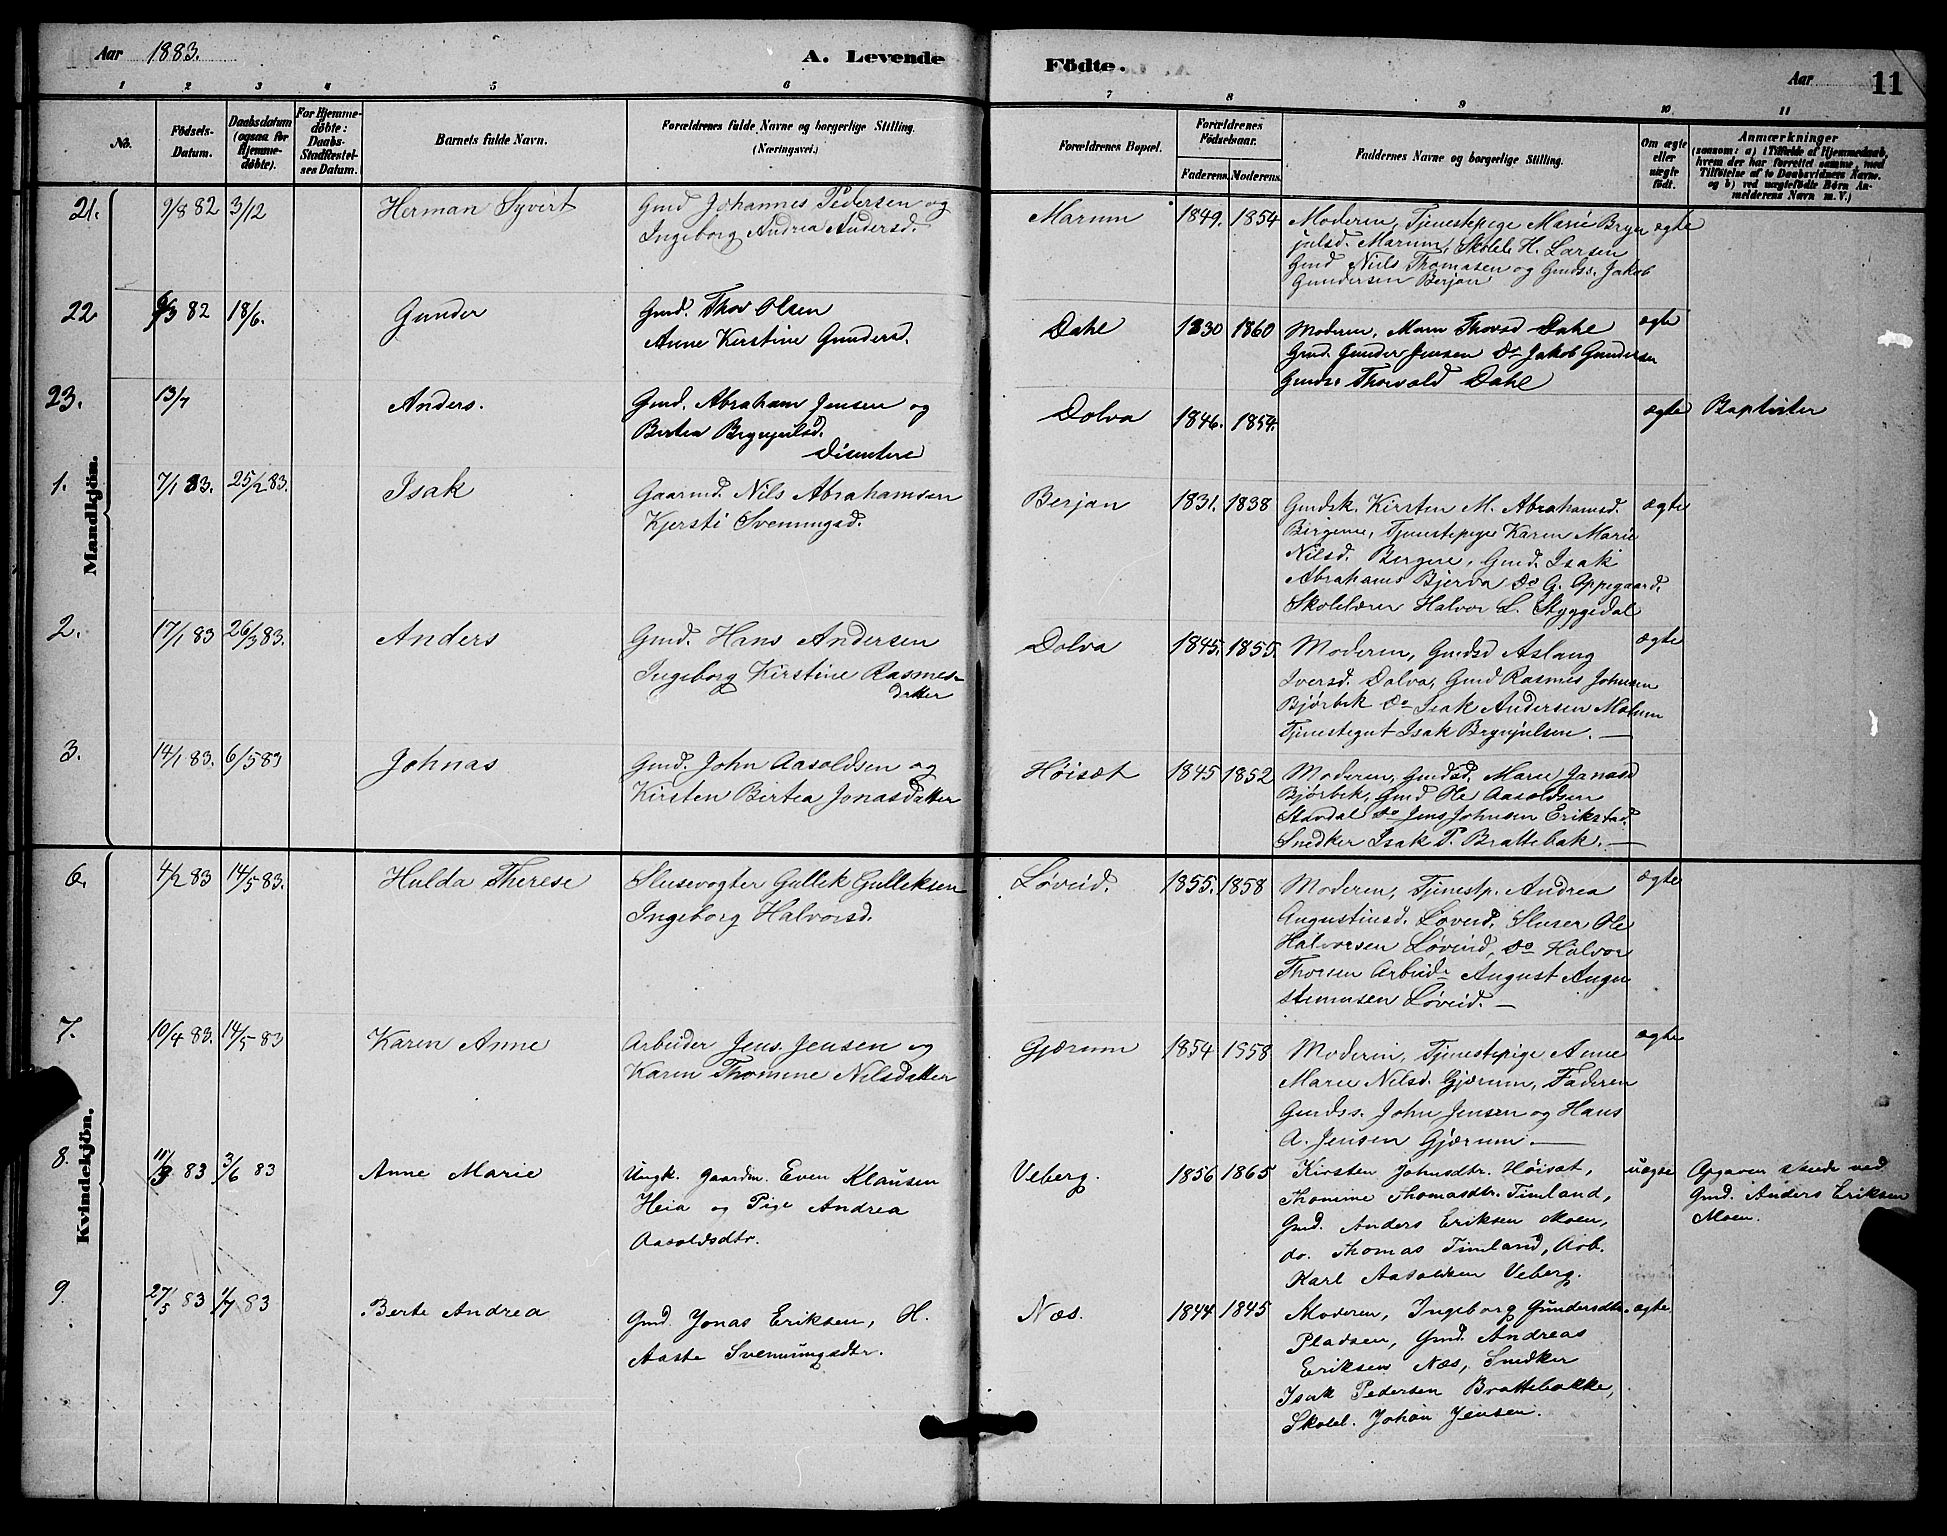 Aar 1883.
A. Levende
Födte.
Aar
11
1 2 3 4 5 6 7 8 9 10 11
No.
Födsels-
Datum.
Daabsdatum
(ogsaa for
Hjemme-
döbte).
For Hjemme-
döbte:
Daabs-
Stadfæstel-
ses Datum.
Barnets fulde Navn.
Forældrenes fulde Navne og borgerlige Stilling.
(Næringsvei.)
Forældrenes Bopæl.
Forældrenes
Födselsaar.
Faderens. Moderens.
Faddernes Navne og borgerlige Stilling.
Om ægte
eller
uægte
födt.
Anmærkninger
(saasom: a) i Tilfælde af Hjemmedaab,
hvem der har forrettet samme, med
Tilföielse af to Daabsvidners Navne,
og b) ved uægtefödte Börn An-
melderens Navn m.V.)
Mandkjön.
21. 9/8 82 3/12 Herman Syvert
Gmd Johannes Pedersen og
Ingeborg Andrea Andersd.
Marum 1849. 1854
Moderen, Tjenestepige Marie Bryn
julsd. Marum, Skolel. H. Larsen
Gmd Niels Thomasen og Gmdss. Jakob
Gundersen Berjan
ægte
22. 9/3 82 18/6. Gunder
Gmd. Thov Olsen
Anne Kirstine Gunders.
Dahl 1830 1860
Moderen, Maren Thovsd Dahl
Gmd. Gunder Jensen Do Jakob Gundersen
Gmdss Thorvald Dahl
ægte
23. 13/7 Anders.
Gmd. Abraham Jensen og
Bertea Brynjulsd.
Disentere
Dolva 1846. 1854.
ægte Baptister
1. 7/1 83. 25/2 83. Isak
Gaarmd. Nils Abrahamsen
Kjersti Svenningsd.
Berjan 1831. 1838
Gmdsk. Kirsten M. Abrahamsd.
Birgene, Tjenestepige Karen Marie
Nilsd. Bergene, Gmd. Isak
Abrahams Bjerva Do G. Oppegaard.
Skolelærer Halvor L. Styggedal
ægte
2. 17/1 83 26/3 83. Anders
Gmd. Hans Andersen
Ingeborg Kirstine Rasmes-
datter
Dolva 1845. 1855.
Moderen, Gmdsd Aslaug
Iversd. Dolva, Gmd Rasmus Johnsen
Bjørbek Do Isak Andersen Mælum
Tjenestegut Isak Brynjulsen. —
ægte
3. 14/1 83. 6/5 83 Johnas
Gmd. John Aasoldsen og
Kirsten Bertea Jonasdatter
Høisæt 1845 1852
Moderen, Gmdsd. Marie Janasd
Bjørbek, Gmd Ole Aasoldsen
Stavdal Do Jens Johnsen Erikstad.
Snedker Isak P. Brattebak. —
Kvindekjön.
6. 4/2 83 14/5 83. Hulda Therese
Slusevogter Gullek Gulleksen
Ingeborg Halvorsd.
Løveid. 1855. 1858
Moderen, Tjenestp. Andrea
Augustinsd. Løveid, Sluser Ole
Halvorsen Løveid, Do Halvor
Thorsen Arbeidr August Augu
stinusen Løveid. —
ægte
7. 10/4 83. 14/5 83 Karen Anne
Arbeider Jens Jensen og
Karen Thomine Nilsdatter
Gjærum 1854 1858
Moderen, Tjenestepige Anne
Marie Nilsd. Gjærum, Faderen
Gmdss. John Jensen og Hans
A. Jensen Gjærum. —
ægte
8. 11/3 83 3/6 83 Anne Marie
Ungk. Gaardm. Even Klausen
Heia og Pige Andrea
Aasoldsdtr.
Veberg. 1856 1865
Kirsten Johnsdtr. Höisat,
Thomine Thomasdtr. Timland,
Gmd. Anders Eriksen Moen,
do. Thomas Timland, Arb.
Karl Aasoldsen Veberg.
uægte
Opgaven skede ved
Gmd. Anders Eriksen
Moen.
9. 27/5 83 1/7 83 Berte Andrea
Gmd. Jonas Eriksen, H.
Aaste Svenningsdtr.
Næs. 1844 1845
Moderen, Ingeborg Gundersdtr.
Pladsen, Gmd. Andreas
Eriksen Næs, Snedker
Isak Pedersen Brattebakke,
Skolel. Johan Jensen.
ægte